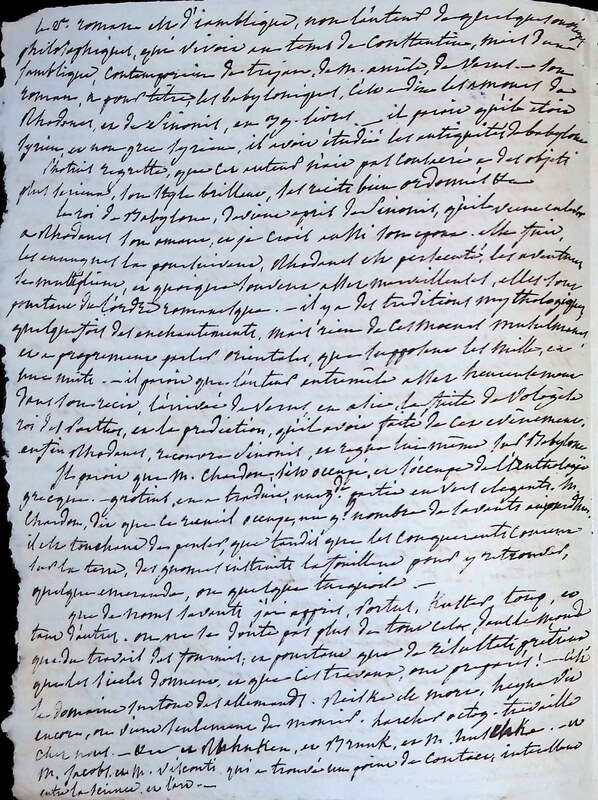 Le 2e. romane est d'iamblique, non l'auteur de quelques ouvrages
philosophiques, qui vivoit au tems de Constantin, mais d'un
jamblique, contemporain de trajan, de m. aurele, de Verus. — son
roman, a pour titre, les babyloniques, c'est a dire les amours de
Rhodanes, et de Sinonis, en livres. — il paroit qu'il etoit
Syrien, et non grec syrien, il avoit étudié les antiquités de babylone
Photius regrette, que cet auteur n'ait pas consacré a des objets
plus serieux, son style brillant, ses recits bien ordonnés &a
Le roi de Babylone, devient epris de Sinonis, qu'il veut enlever
a Rhodanes son amant, et je crois aussi son epoux. elle fuit
les eunuques la poursuivent, Rhodanes est persecuté, les aventures
se multiplient, et quoique souvent assez merveilleuses, elles sont
pourtant de l'ordre romanesque. — il y a des traditions mythologiques
quelquefois des enchantements, mais rien de ces moeurs musulmanes
et a proprement parler orientales, que supposent les mille, et
une nuits. — il paroit que l'auteur entremêle assez heureusement
dans son recit, l'arrivée de Verus, en asie, la fuite de Vologèse
roi des Parthes, et la prediction, qu'il avoit faite de ces evènements.
enfin Rhodanes, recouvra Sinonis, et regne lui même sur Babylone
Il paroit que M. Chardon, s'est occupé, et s'occupe de l'Anthologie
grecque. — grotius, en a traduit, une partie en vers elegants. M.
Chardon, dit que ce recueil occupe, un gd nombre de savants aujourdhui
il est touchant de penser, que tandis que les conquerants courent
sur la terre, des gnomes instruits la fouillent pour y retrouver,
quelque emeraude, ou quelque topaze —
que de noms savants j'ai appris, Portus, Kuster, toup, et
tant d'autres. on ne se doute pas plus de tout cela, dans le monde
que du travail des fourmis, et pourtant que de résultats precieux
que les siecles donnent, et que ces travaux, ont preparés! — c'est
le domaine surtout des allemands. Reiske est mort, heyne vit
encore, ou vient seulement de mourir, travaille
chez nous. — et Rhunken, et Brunk, et M. huschke. — et
M. Jacobs, et M. Visconti qui a trouvé un point de contact, intellectuel
entre la science, et l'art. —